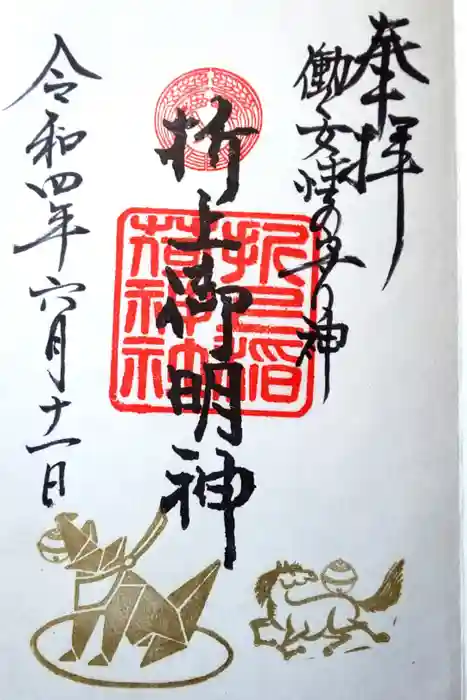 奉拝
働く女性の守り神
折上御明神
折上稲荷神社
令和四年六月十一日